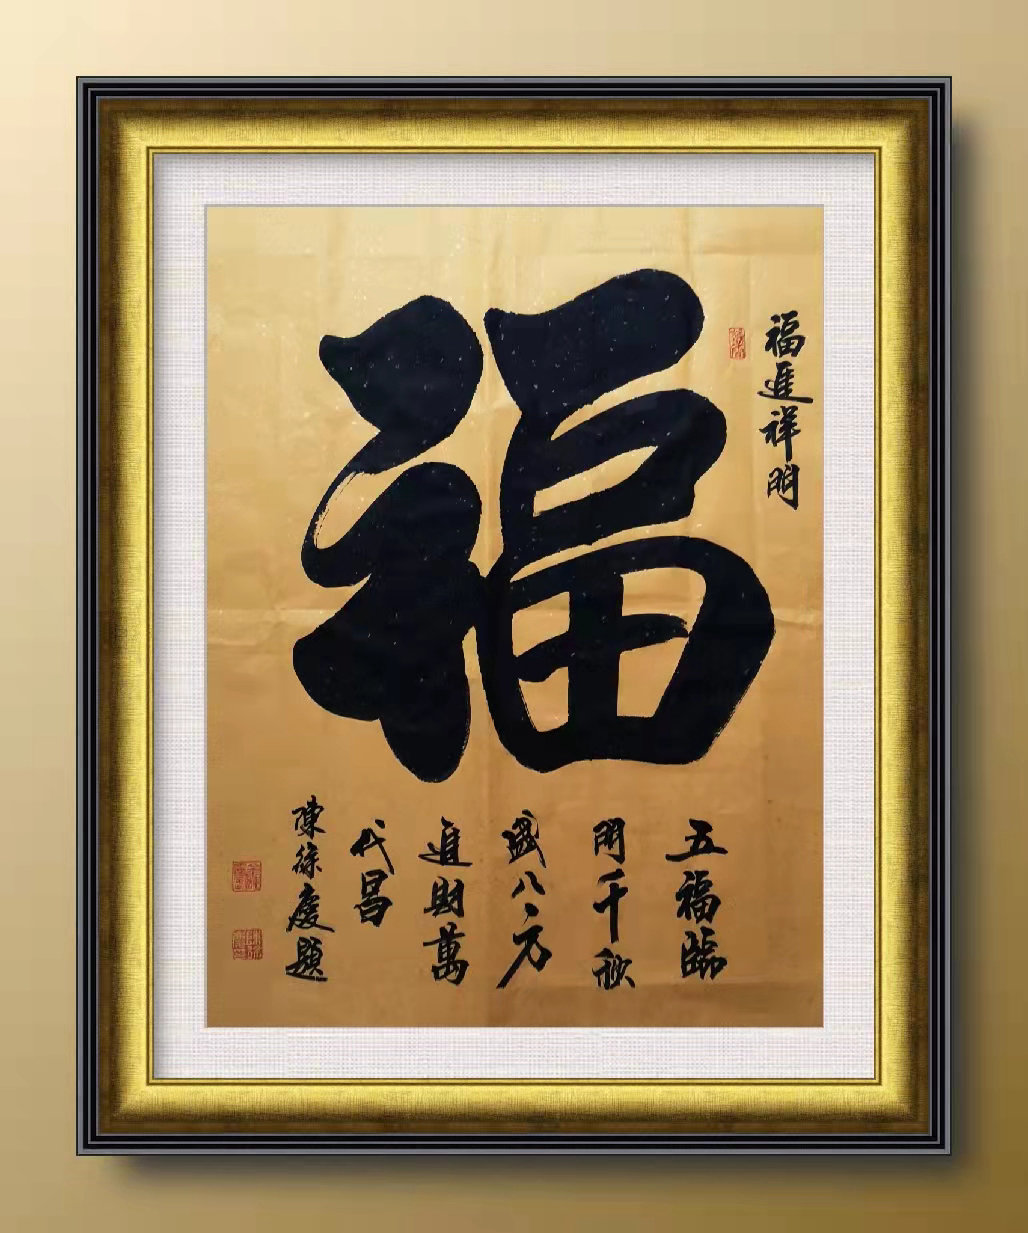 福進祥門
福
五福臨
門千秋
盛八方
進財萬
代昌
陳徐慶題